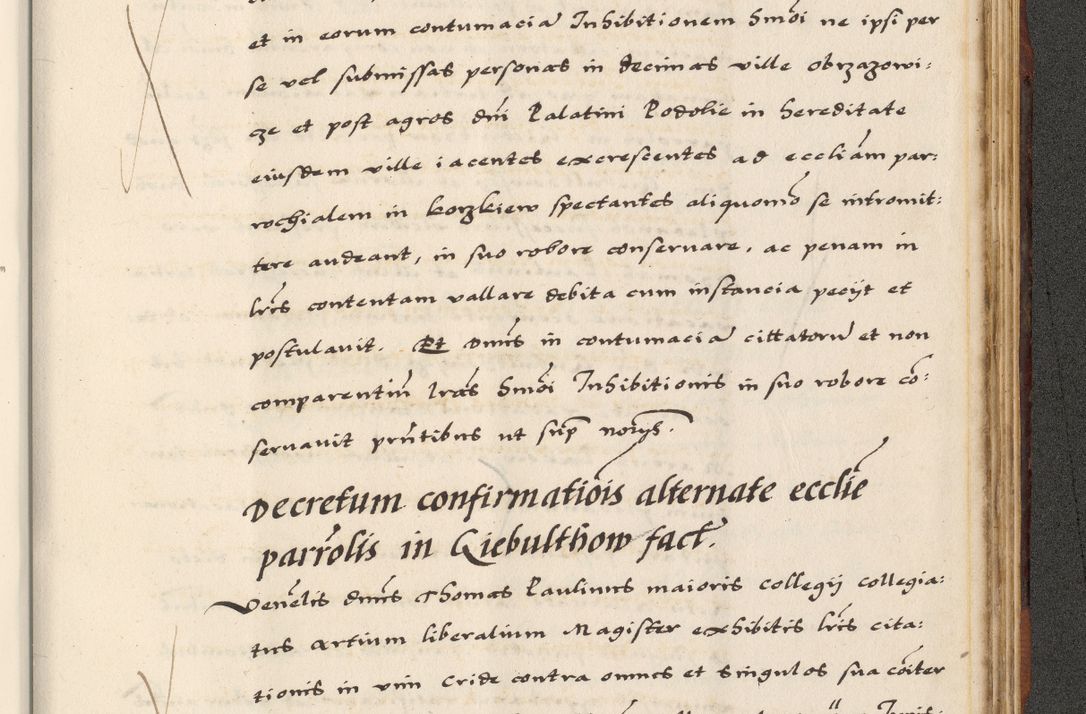 et in eorum contumaciã Inhibitionem hmõi ne ipsi per
se vel submissas personas in decimas ville obrzazowi:
cze et post agros dñi Palatini Podolie in hereditate
eiusdem ville iacentes excrescentes ad eccliãm par:
rochialem in korzkiew spectantes aliquomõ se intromit:
tere audeant, in suo robore conservare, ac penam in
lris contentam vallare debita cum instancia peciјt et
postulavit. Et Dnus in contumaciã cittatorũ et non
comparentiũ lras hmõi Inhibitionis in suo robore cõ:
servavit pñtibus ut sup notarijs.
Decretum confirmatiõis alternate ecclie
parrolis in Giebulthow fact.
Venelis dnus Thomas Paulinus maioris collegij collegia:
tus artium liberalium Magister exhibitis lris cita:
tionis in vim Cride contra omnes et singulos sua coiter